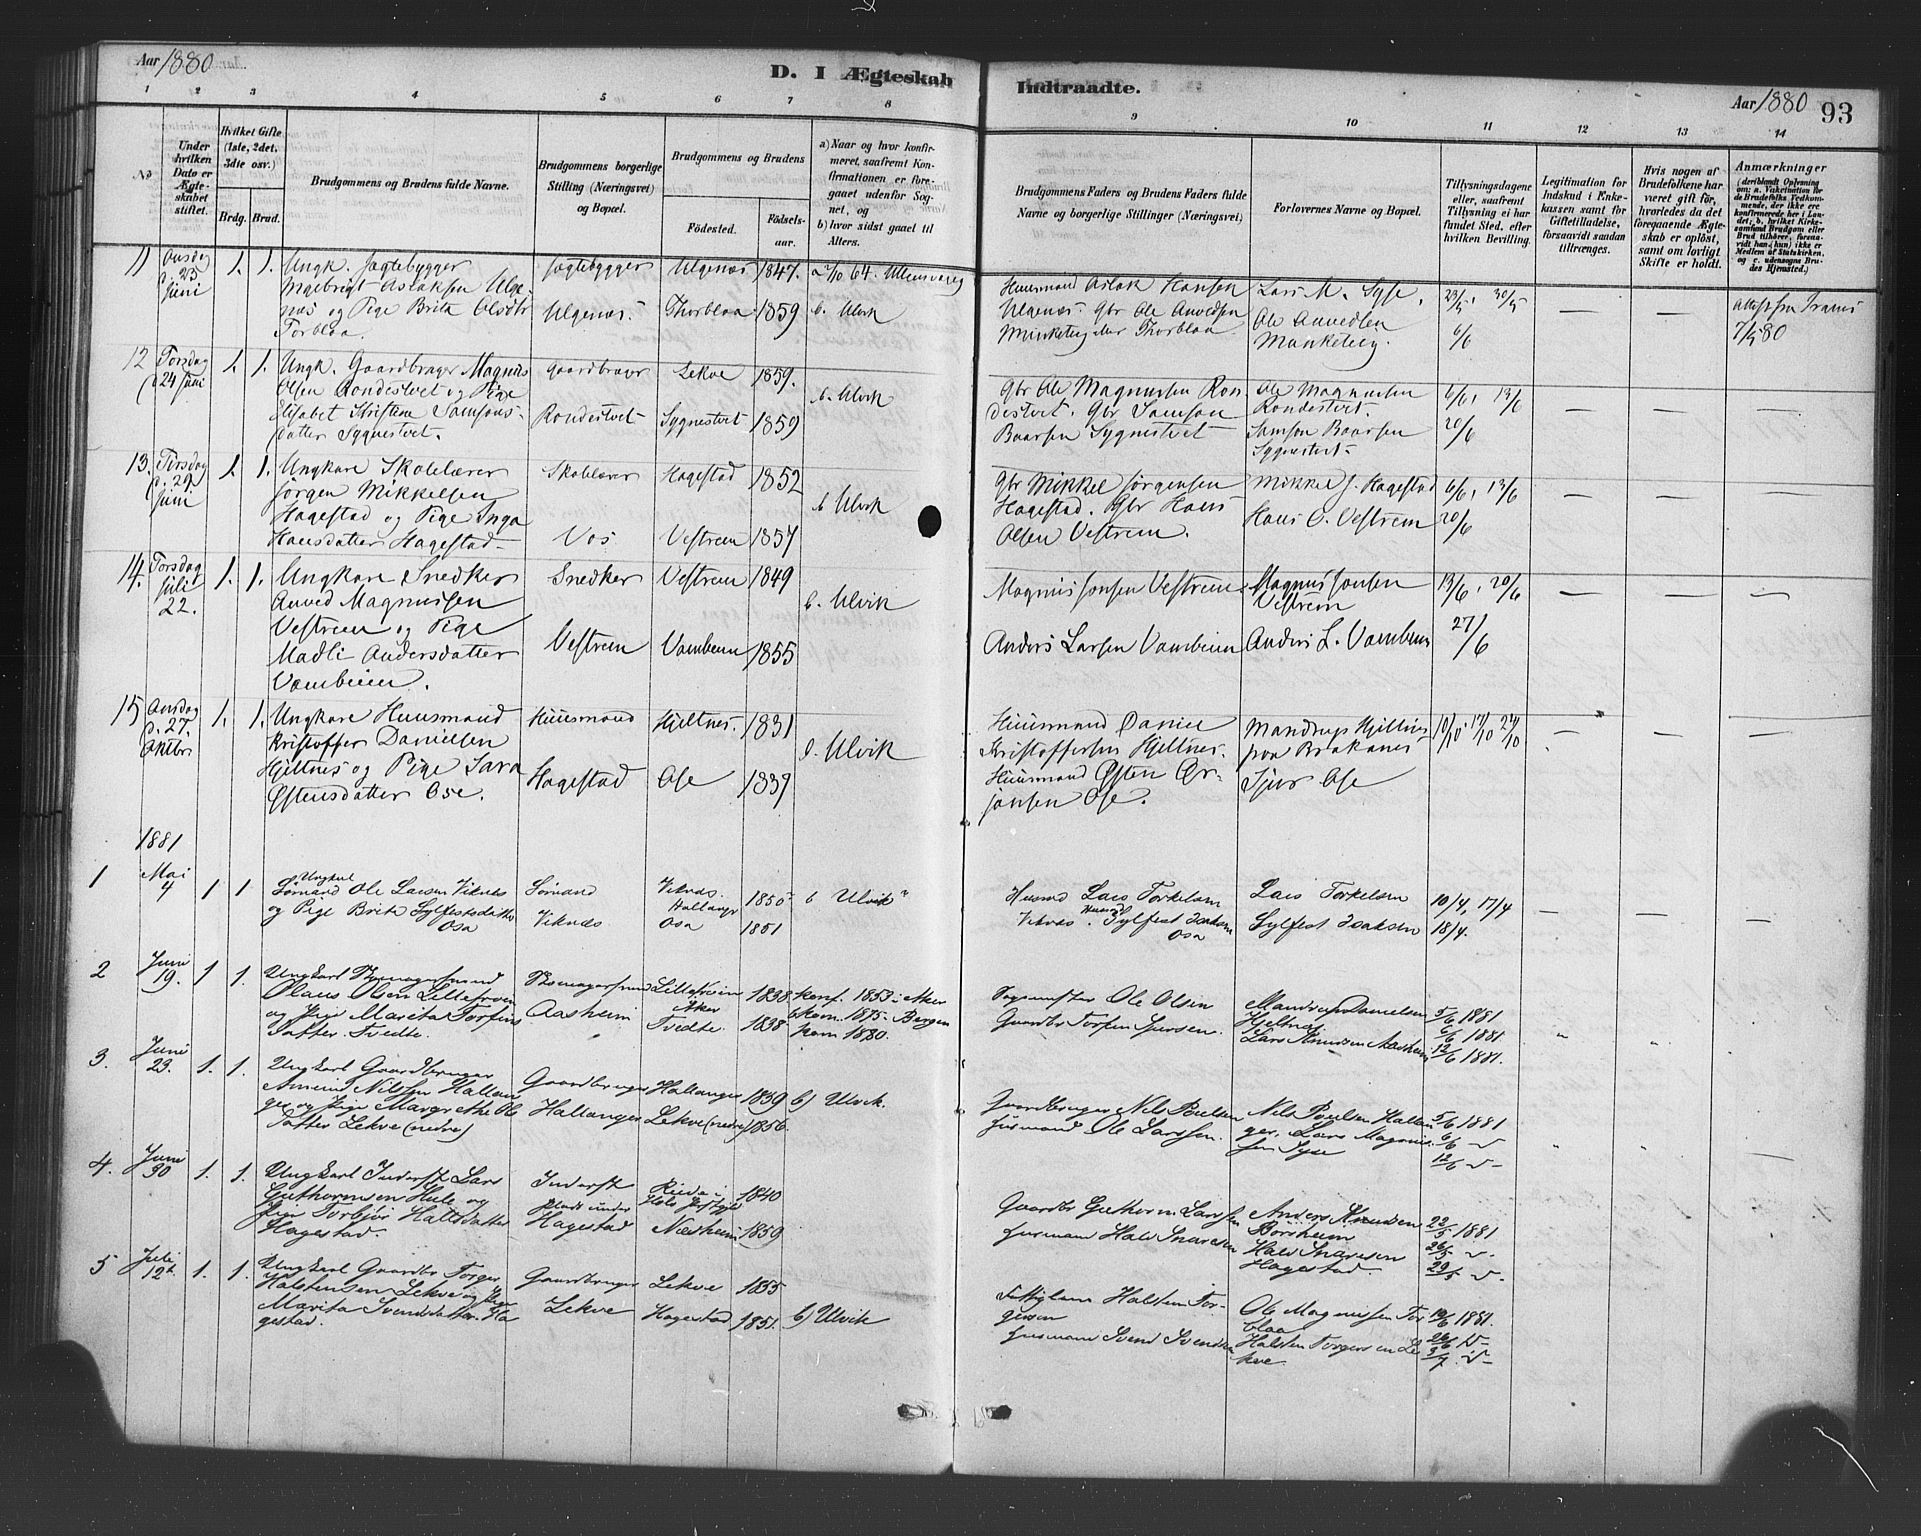 Aar 1880
D. I Ægteskab
Indtraadte.
Aar 1880
93
1 2 3 4 5 6 7 8
9 10 11 12 13 14
No
Under hvilken Dato er Ægteskabet stiftet.
Hvilket Gifte (1ste, 2det, 3die osv.)
Brdg. Brud.
Brudgommens og Brudens fulde Navne.
Brudgommens borgerlige Stilling (Næringsvei) og Bopæl.
Brudgommens og Brudens
Fødested.
Fødselsaar.
a) Naar og hvor konfirmeret, saafremt Konfirmationen er foregaaet udenfor Sognet, og
b) hvor sidst gaaet til Alters.
Brudgommens Faders og Brudens Faders fulde Navne og borgerlige Stillinger (Næringsvei)
Forlovernes Navne og Bopæl.
Tillysningsdagene eller, saafremt Tillysning ei har fundet Sted, efter hvilken Bevilling.
Legitimation for Indskud i Enkekassen samt for Giftetilladelse, forsaavidt saadan tiltrænges.
Hvis nogen af Brudefolkene har været gift før, hvorledes da det foregaaende Ægteskab er opløst, samt om lovligt Skifte er holdt.
Anmærkninger
11 Onsdag d. 23 Juni 1. 1. Ungk. Jagtebygger Jagtebygger Ulgenæs 1847. a 2/10 64. Ullensvang
Ingebrigt Aslaksen Ulge
næs og Pige Brita Olsdtr Ulgenæs. Thorblaa 1859 b. Ulvik
Torblaa.
Huusmand Aslak Hansen Lars M. Syse. 23/5, 30/5
Ulgenæs. Gbr Ole Anvedsen Ole Anvedsen 6/6
Thorblaa
7/5 80
12 Torsdag d 24 Juni 1. 1. Ungk. Gaardbruger Magnus Gaardbrugr Lekve 1859.
Olsen Rondestvet og Pige b. Ulvik
Elisabet Kristine Samsons- Rondestvet Sygnestvet 1859
datter Sygnestvet.
Gbr Ole Magnussen Ron Ole Magnussen 6/6, 13/6
destvet. Gbr Samson Rondestvet. 20/6
Baarsen Sygnestvet Samson Baarsen
Sygnestvet
13. Tirsdag d. 29 Juni 1. 1. Ungkare Skolelærer Skolelærer Hagestad 1852
Jørgen Mikkelsen b Ulvik
Hagestad og Pige Inga
Hansdatter Hagestad Vos. Vestrem 1857
Gbr Mikkel Jørgensen Mikkel J. Hagestad 6/6, 13/6
Hagestad. Gbr Hans Hans O. Vestrem 20/6
Olsen Vestrem.
14. Torsdag Juli 22. 1. 1. Ungkare Snedker Snedker Vestrem 1849
Anved Magnussen b. Ulvik
Vestrem og Pige
Madli Andersdatter Vestrem Vambeim 1855
Vambeim.
Magnus Jonsen Vestrem Magnus Jonsen 13/6, 20/6
Vestrem
Anders Larsen Vambeim Anders L. Vambeim 27/6
15 Onsdag d. 27. Oktbr 1. 1. Ungkare Huusmand Huusmand Hjeltnes. 1831
Kristoffer Danielsen b. Ulvik
Hjeltnes og Pige Sara
Østensdatter Ose. Hagestad Ose 1839
Huusmand Daniel Mandrup Hjeltnes 10/10. 17/10 24/10
Kristoffersen Hjeltnes. paa Brakanes
Huusmand Østen Ør- Sjur Ose
jansen Ose.
1881
1 Mai 4 1 1 Ungkarl
Sømand Ole Larsen Viknæs Sømand Viknæs. 1855 b Ulvik
og Pige Brita Sylfestsdatter Viknæs Osa 1851
Osa
Husmd Lars Torkelsen Lars Torkelsen 10/4, 17/4
Viknæs. Husmd Sylfest Isaksen Sylfest Isaksen 18/4.
Osa
2 Juni 19. 1 1. Ungkarl Skomagersvend Skomagersvend Lillefrøen 1838. konf. 1853 i Aker
Olaus Olsen Lillefrøen Aker b kom. 1875 Bergen
og Pige Marita Torfins Aasheim Tvedte. 1838 kom 1880.
datter Tvedte.
Ole Olsen Mandrup Danielsen 5/6 1881
Gaardbr Torfin Sjursen. Hjeltnes 6/6 1881
Lars Knudsen Aasheim 12/6 1881.
3. Juni 23. 1. 1. Ungkarl Gaardbruger Gaardbruger Hallanger 1839 b) Ulvik.
Nilssen Hallan
ger og Pige Margrethe Ols Hallanger Lekve (nedre) 1856.
datter Lekve (nedre)
Gaardbruger Nils Poulsen Nils Poulsen Hallan 5/6 1881
Husmand Ole Larssen. ger. Lars Magnus 6/6
sen Syse 12/6
4. Juni 30 1. 1. Ungkarl Inderst Lars Inderst 1840
Guthormsen Hule og Plads under
Pige Torbjør Hallsdatter Hagestad Næsheim 1859
Hagestad.
Gaardbr Guthorm Larssen Anders Knudsen 22/5 1881
Husmand Hald Snaresen Børsheim 26/5
Hald Snaresen 29/5
Hagestad.
5 Juli 12te 1. 1. Ungkarl Gaardbr Torger Gaardbruger Lekve 1855
Halstensen Lekve og Pige
Marita Svendsdatter Ha Lekve Hagestad 1851. b) Ulvik
gestad.
Halsten Tor- Ole Magnussen Tor 19/6 1881.
gersen blaa 26/6
Husmand Svend Svendsen Halsten Torgersen Le 3/7
kve